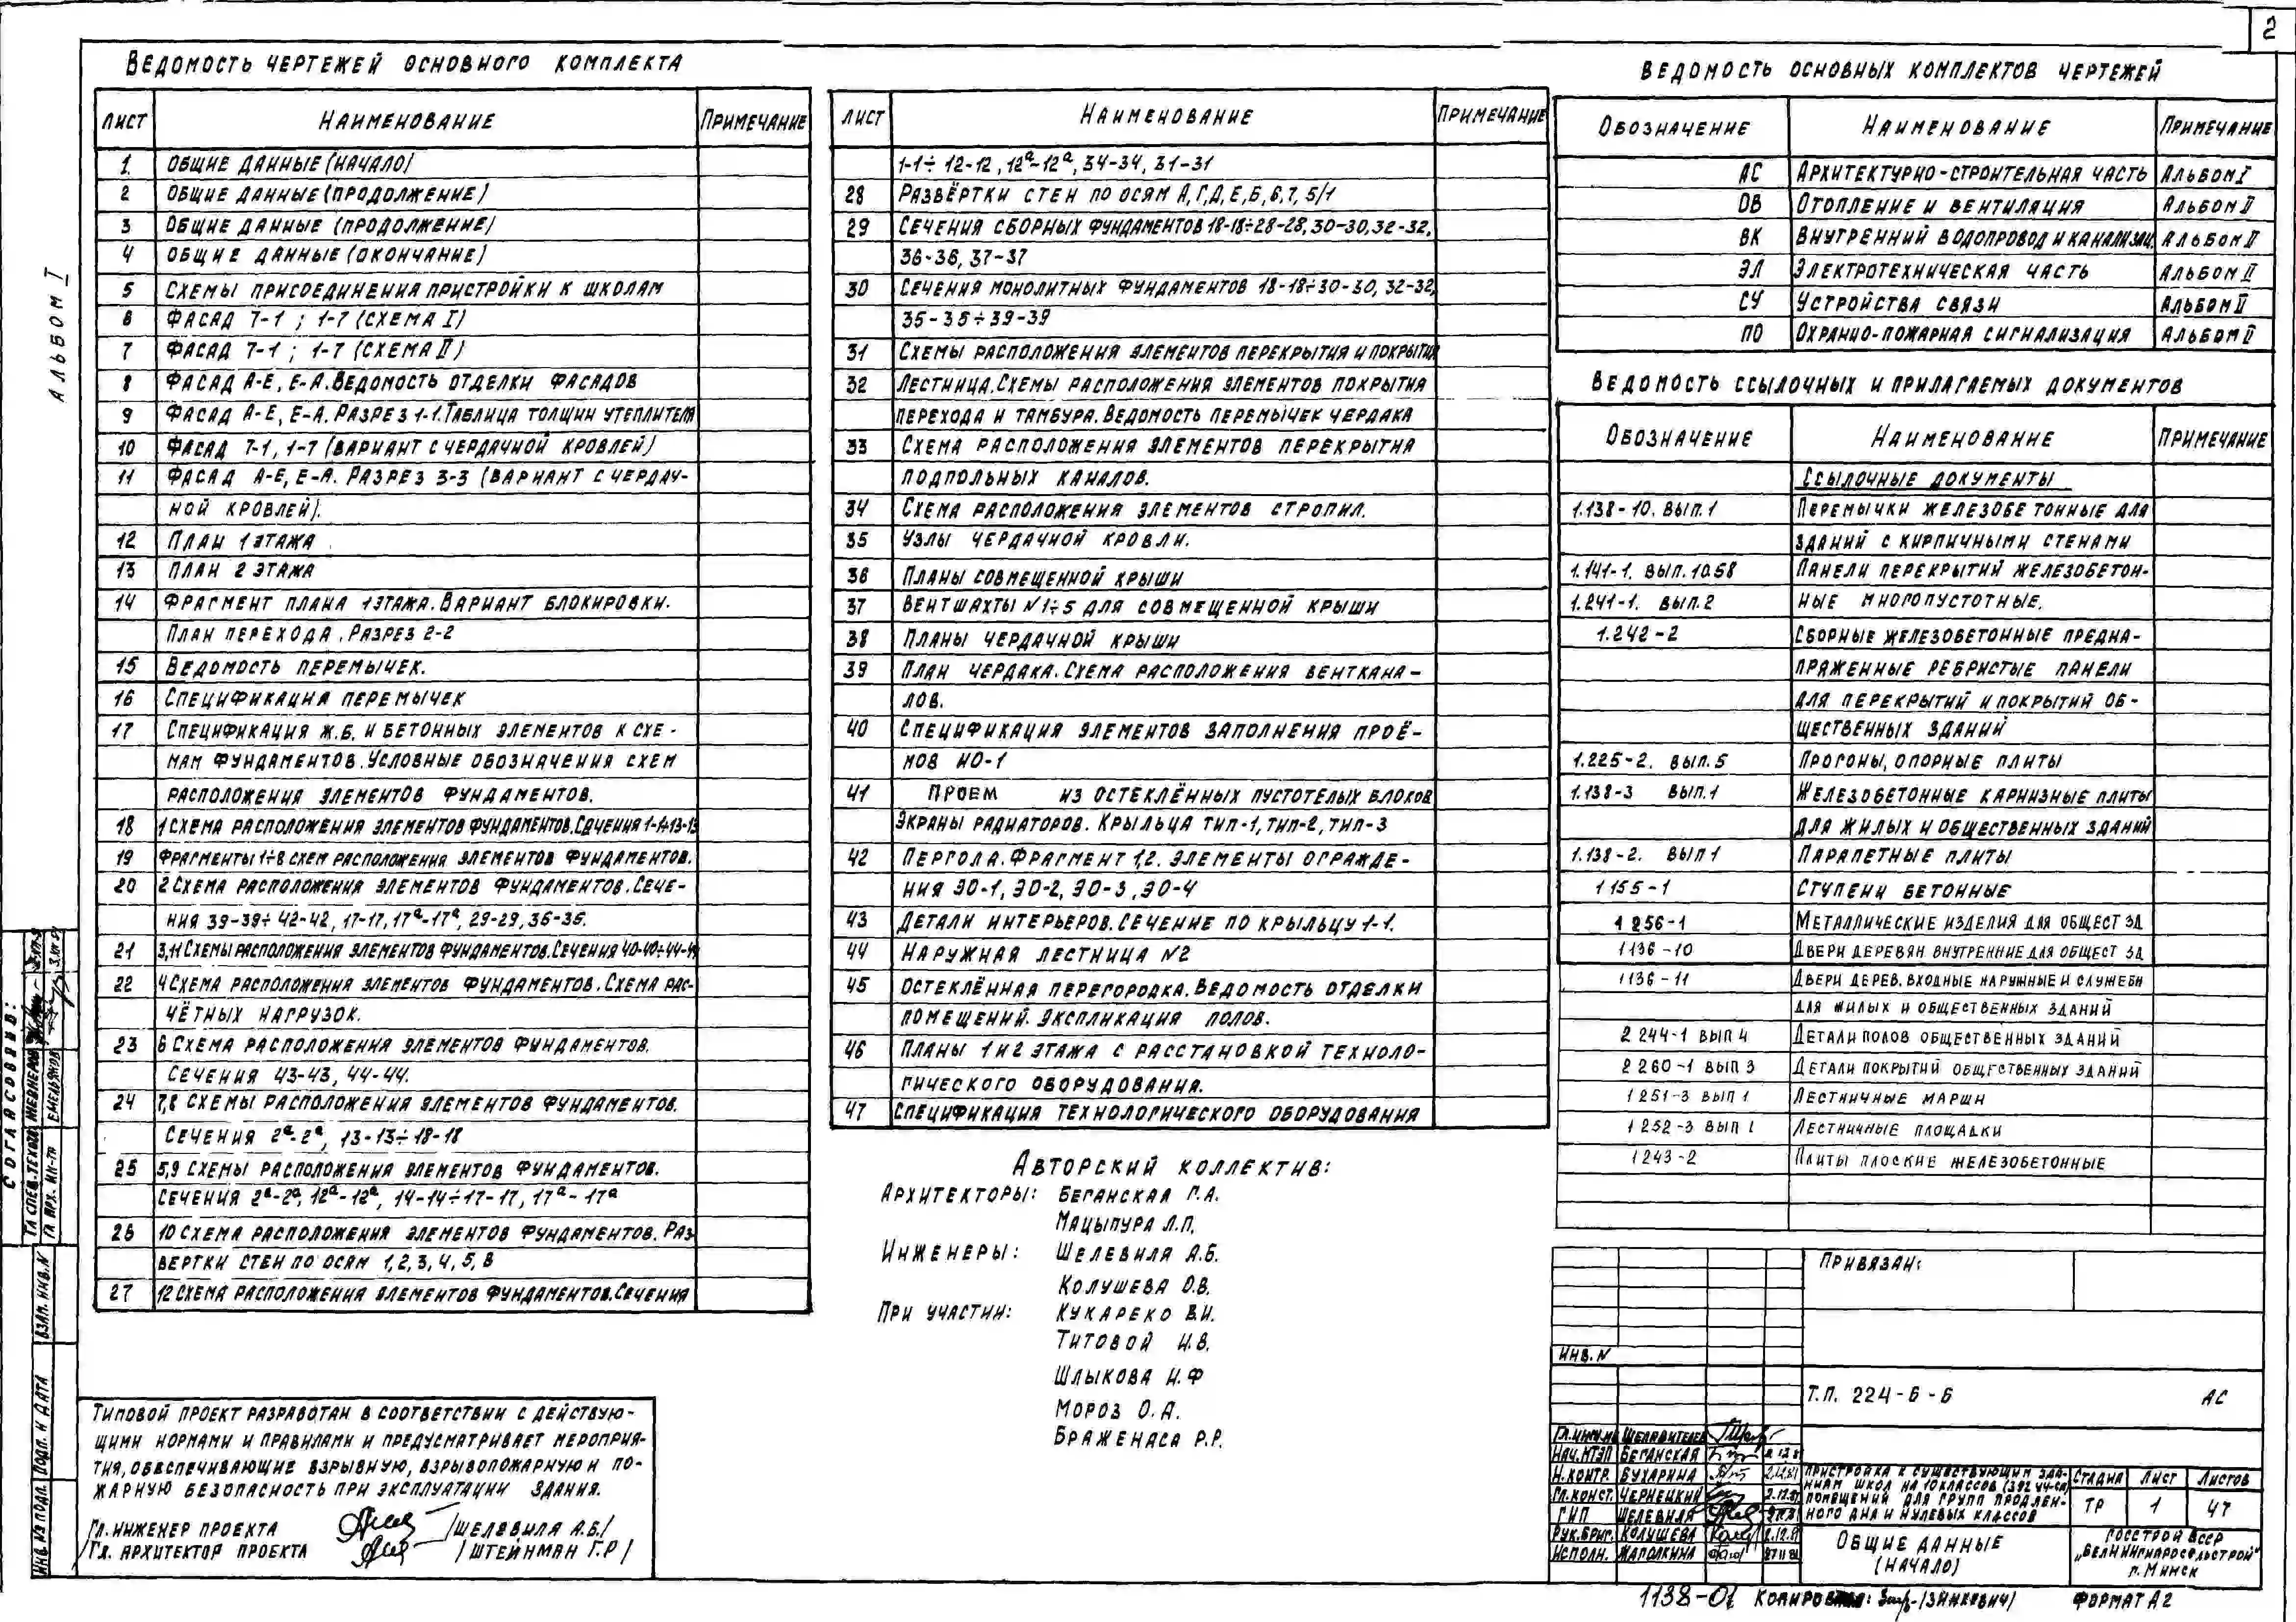 2
АЛЬБОМ I
ВЕДОМОСТЬ ЧЕРТЕЖЕЙ ОСНОВНОГО КОМПЛЕКТА
ЛИСТ НАИМЕНОВАНИЕ ПРИМЕЧАНИЕ
1. ОБЩИЕ ДАННЫЕ (НАЧАЛО)
2 ОБЩИЕ ДАННЫЕ (ПРОДОЛЖЕНИЕ)
3 ОБЩИЕ ДАННЫЕ (ПРОДОЛЖЕНИЕ)
4 ОБЩИЕ ДАННЫЕ (ОКОНЧАНИЕ)
5 СХЕМЫ ПРИСОЕДИНЕНИЯ ПРИСТРОЙКИ К ШКОЛАМ
6 ФАСАД 7-1 ; 1-7 (СХЕМА I)
7 ФАСАД 7-1 ; 1-7 (СХЕМА II)
8 ФАСАД А-Е, Е-А. ВЕДОМОСТЬ ОТДЕЛКИ ФАСАДОВ
9 ФАСАД А-Е, Е-А. РАЗРЕЗ 1-1. ТАБЛИЦА ТОЛЩИН УТЕПЛИТЕЛЯ
10 ФАСАД 7-1, 1-7 (ВАРИАНТ С ЧЕРДАЧНОЙ КРОВЛЕЙ)
11 ФАСАД А-Е, Е-А. РАЗРЕЗ 3-3 (ВАРИАНТ С ЧЕРДАЧ-
НОЙ КРОВЛЕЙ).
12 ПЛАН 1 ЭТАЖА
13 ПЛАН 2 ЭТАЖА
14 ФРАГМЕНТ ПЛАНА 1 ЭТАЖА. ВАРИАНТ БЛОКИРОВКИ.
ПЛАН ПЕРЕХОДА. РАЗРЕЗ 2-2
15 ВЕДОМОСТЬ ПЕРЕМЫЧЕК.
16 СПЕЦИФИКАЦИЯ ПЕРЕМЫЧЕК
17 СПЕЦИФИКАЦИЯ Ж.Б. И БЕТОННЫХ ЭЛЕМЕНТОВ К СХЕ-
МАМ ФУНДАМЕНТОВ. УСЛОВНЫЕ ОБОЗНАЧЕНИЯ СХЕМ
РАСПОЛОЖЕНИЯ ЭЛЕМЕНТОВ ФУНДАМЕНТОВ.
18 1 СХЕМА РАСПОЛОЖЕНИЯ ЭЛЕМЕНТОВ ФУНДАМЕНТОВ. СЕЧЕНИЯ 1-1÷13-13
19 ФРАГМЕНТЫ 1÷8 СХЕМ РАСПОЛОЖЕНИЯ ЭЛЕМЕНТОВ ФУНДАМЕНТОВ.
20 2 СХЕМА РАСПОЛОЖЕНИЯ ЭЛЕМЕНТОВ ФУНДАМЕНТОВ. СЕЧЕ-
НИЯ 39-39÷42-42, 17-17, 17а-17а, 29-29, 36-36.
21 3,11 СХЕМЫ РАСПОЛОЖЕНИЯ ЭЛЕМЕНТОВ ФУНДАМЕНТОВ. СЕЧЕНИЯ 40-40÷44-44
22 4 СХЕМА РАСПОЛОЖЕНИЯ ЭЛЕМЕНТОВ ФУНДАМЕНТОВ. СХЕМА РАС-
ЧЁТНЫХ НАГРУЗОК.
23 6 СХЕМА РАСПОЛОЖЕНИЯ ЭЛЕМЕНТОВ ФУНДАМЕНТОВ.
СЕЧЕНИЯ 43-43, 44-44.
24 7,8 СХЕМЫ РАСПОЛОЖЕНИЯ ЭЛЕМЕНТОВ ФУНДАМЕНТОВ.
СЕЧЕНИЯ 2а-2а, 13-13÷18-18
25 5,9 СХЕМЫ РАСПОЛОЖЕНИЯ ЭЛЕМЕНТОВ ФУНДАМЕНТОВ.
СЕЧЕНИЯ 2а-2а, 12а-12а, 14-14÷17-17, 17а-17а
26 10 СХЕМА РАСПОЛОЖЕНИЯ ЭЛЕМЕНТОВ ФУНДАМЕНТОВ. РАЗ
ВЕРТКИ СТЕН ПО ОСЯМ 1, 2, 3, 4, 5, В
27 12 СХЕМА РАСПОЛОЖЕНИЯ ЭЛЕМЕНТОВ ФУНДАМЕНТОВ. СЕЧЕНИЯ
ЛИСТ НАИМЕНОВАНИЕ ПРИМЕЧАНИЕ
1-1÷12-12, 12а-12а, 34-34, 31-31
28 РАЗВЁРТКИ СТЕН ПО ОСЯМ А, Г, Д, Е, Б, 6, 7, 5/1
29 СЕЧЕНИЯ СБОРНЫХ ФУНДАМЕНТОВ 18-18÷28-28, 30-30, 32-32,
36-36, 37-37
30 СЕЧЕНИЯ МОНОЛИТНЫХ ФУНДАМЕНТОВ 18-18÷30-30, 32-32,
35-35÷39-39
31 СХЕМЫ РАСПОЛОЖЕНИЯ ЭЛЕМЕНТОВ ПЕРЕКРЫТИЯ И ПОКРЫТИЯ
32 ЛЕСТНИЦА. СХЕМЫ РАСПОЛОЖЕНИЯ ЭЛЕМЕНТОВ ПОКРЫТИЯ
ПЕРЕХОДА И ТАМБУРА. ВЕДОМОСТЬ ПЕРЕМЫЧЕК ЧЕРДАКА
33 СХЕМА РАСПОЛОЖЕНИЯ ЭЛЕМЕНТОВ ПЕРЕКРЫТИЯ
ПОДПОЛЬНЫХ КАНАЛОВ.
34 СХЕМА РАСПОЛОЖЕНИЯ ЭЛЕМЕНТОВ СТРОПИЛ.
35 УЗЛЫ ЧЕРДАЧНОЙ КРОВЛИ.
36 ПЛАНЫ СОВМЕЩЕННОЙ КРЫШИ
37 ВЕНТШАХТЫ N 1÷5 ДЛЯ СОВМЕЩЕННОЙ КРЫШИ
38 ПЛАНЫ ЧЕРДАЧНОЙ КРЫШИ
39 ПЛАН ЧЕРДАКА. СХЕМА РАСПОЛОЖЕНИЯ ВЕНТКАНА-
ЛОВ.
40 СПЕЦИФИКАЦИЯ ЭЛЕМЕНТОВ ЗАПОЛНЕНИЯ ПРОЁ-
МОВ НО-1
41 ПРОЕМ ИЗ ОСТЕКЛЁННЫХ ПУСТОТЕЛЫХ БЛОКОВ
ЭКРАНЫ РАДИАТОРОВ. КРЫЛЬЦА ТИП-1, ТИП-2, ТИП-3
42 ПЕРГОЛА. ФРАГМЕНТ 1,2. ЭЛЕМЕНТЫ ОГРАЖДЕ-
НИЯ ЭО-1, ЭО-2, ЭО-3, ЭО-4
43 ДЕТАЛИ ИНТЕРЬЕРОВ. СЕЧЕНИЕ ПО КРЫЛЬЦУ 1-1.
44 НАРУЖНАЯ ЛЕСТНИЦА N2
45 ОСТЕКЛЁННАЯ ПЕРЕГОРОДКА. ВЕДОМОСТЬ ОТДЕЛКИ
ПОМЕЩЕНИЙ. ЭКСПЛИКАЦИЯ ПОЛОВ.
46 ПЛАНЫ 1 И 2 ЭТАЖА С РАССТАНОВКОЙ ТЕХНОЛО-
ГИЧЕСКОГО ОБОРУДОВАНИЯ.
47 СПЕЦИФИКАЦИЯ ТЕХНОЛОГИЧЕСКОГО ОБОРУДОВАНИЯ
АВТОРСКИЙ КОЛЛЕКТИВ:
АРХИТЕКТОРЫ: БЕГАНСКАЯ Г.А.
МАЦЫПУРА Л.П.
ИНЖЕНЕРЫ: ШЕЛЕВИЛЯ А.Б.
КОЛУШЕВА О.В.
ПРИ УЧАСТИИ: КУКАРЕКО В.И.
ТИТОВОЙ И.В.
ШЛЫКОВА И.Ф
МОРОЗ О.А.
БРАЖЕНАСА Р.Р.
ВЕДОМОСТЬ ОСНОВНЫХ КОМПЛЕКТОВ ЧЕРТЕЖЕЙ
ОБОЗНАЧЕНИЕ НАИМЕНОВАНИЕ ПРИМЕЧАНИЕ
АС АРХИТЕКТУРНО-СТРОИТЕЛЬНАЯ ЧАСТЬ АЛЬБОМ I
ОВ ОТОПЛЕНИЕ И ВЕНТИЛЯЦИЯ АЛЬБОМ II
ВК ВНУТРЕННИЙ ВОДОПРОВОД И КАНАЛИЗАЦ. АЛЬБОМ II
ЭЛ ЭЛЕКТРОТЕХНИЧЕСКАЯ ЧАСТЬ АЛЬБОМ II
СУ УСТРОЙСТВА СВЯЗИ АЛЬБОМ II
ПО ОХРАННО-ПОЖАРНАЯ СИГНАЛИЗАЦИЯ АЛЬБОМ II
ВЕДОМОСТЬ ССЫЛОЧНЫХ И ПРИЛАГАЕМЫХ ДОКУМЕНТОВ
ОБОЗНАЧЕНИЕ НАИМЕНОВАНИЕ ПРИМЕЧАНИЕ
ССЫЛОЧНЫЕ ДОКУМЕНТЫ
1.138-10. ВЫП.1 ПЕРЕМЫЧКИ ЖЕЛЕЗОБЕТОННЫЕ ДЛЯ
ЗДАНИЙ С КИРПИЧНЫМИ СТЕНАМИ
1.141-1. ВЫП.10.58 ПАНЕЛИ ПЕРЕКРЫТИЙ ЖЕЛЕЗОБЕТОН-
1.241-1. ВЫП.2 НЫЕ МНОГОПУСТОТНЫЕ.
1.242-2 СБОРНЫЕ ЖЕЛЕЗОБЕТОННЫЕ ПРЕДНА-
ПРЯЖЕННЫЕ РЕБРИСТЫЕ ПАНЕЛИ
ДЛЯ ПЕРЕКРЫТИЙ И ПОКРЫТИЙ ОБ-
ЩЕСТВЕННЫХ ЗДАНИЙ
1.225-2. ВЫП.5 ПРОГОНЫ, ОПОРНЫЕ ПЛИТЫ
1.138-3 ВЫП.1 ЖЕЛЕЗОБЕТОННЫЕ КАРНИЗНЫЕ ПЛИТЫ
ДЛЯ ЖИЛЫХ И ОБЩЕСТВЕННЫХ ЗДАНИЙ
1.138-2. ВЫП 1 ПАРАПЕТНЫЕ ПЛИТЫ
1 155-1 СТУПЕНИ БЕТОННЫЕ
1 256-1 МЕТАЛЛИЧЕСКИЕ ИЗДЕЛИЯ ДЛЯ ОБЩЕСТ ЗД
1 136-10 ДВЕРИ ДЕРЕВЯН ВНУТРЕННИЕ ДЛЯ ОБЩЕСТ ЗД
1 136-11 ДВЕРИ ДЕРЕВ. ВХОДНЫЕ НАРУЖНЫЕ И СЛУЖЕБН
ДЛЯ ЖИЛЫХ И ОБЩЕСТВЕННЫХ ЗДАНИЙ
2 244-1 ВЫП 4 ДЕТАЛИ ПОЛОВ ОБЩЕСТВЕННЫХ ЗДАНИЙ
2 260-1 ВЫП 3 ДЕТАЛИ ПОКРЫТИЙ ОБЩЕСТВЕННЫХ ЗДАНИЙ
1 251-3 ВЫП 1 ЛЕСТНИЧНЫЕ МАРШИ
1 252-3 ВЫП 1 ЛЕСТНИЧНЫЕ ПЛОЩАДКИ
1 243-2 ПЛИТЫ ПЛОСКИЕ ЖЕЛЕЗОБЕТОННЫЕ
ПРИВЯЗАН:
ИНВ. N
Т.П. 224-6-6 АС
ГЛ.ИНЖ.ИН
НАЧ.МТЭП БЕГАНСКАЯ
Н.КОНТР. БУХАРИНА 2.12.81
ГЛ.КОНСТ. ЧЕРНЕЦКИЙ 2.12.81
ГИП ШЕЛЕВИЛЯ
РУК.БРИГ. КОЛУШЕВА 2.12.81
ИСПОЛН. ЖАПОЛКИНА 27 11 81
ПРИСТРОЙКА К СУЩЕСТВУЮЩИМ ЗДА-
НИЯМ ШКОЛ НА 10 КЛАССОВ (392 УЧ-СЯ)
ПОМЕЩЕНИЙ ДЛЯ ГРУПП ПРОДЛЕН-
НОГО ДНЯ И НУЛЕВЫХ КЛАССОВ
СТАДИЯ ЛИСТ ЛИСТОВ
ТР 1 47
ОБЩИЕ ДАННЫЕ
(НАЧАЛО)
ГОССТРОЙ БССР
„БЕЛНИИГИПРОСЕЛЬСТРОЙ"
г. МИНСК
1138-01 КОПИРОВАЛ: /ЗИНКЕВИЧ/ ФОРМАТ А2
ТИПОВОЙ ПРОЕКТ РАЗРАБОТАН В СООТВЕТСТВИИ С ДЕЙСТВУЮ-
ЩИМИ НОРМАМИ И ПРАВИЛАМИ И ПРЕДУСМАТРИВАЕТ МЕРОПРИЯ-
ТИЯ, ОБЕСПЕЧИВАЮЩИЕ ВЗРЫВНУЮ, ВЗРЫВОПОЖАРНУЮ И ПО-
ЖАРНУЮ БЕЗОПАСНОСТЬ ПРИ ЭКСПЛУАТАЦИИ ЗДАНИЯ.
ГЛ. ИНЖЕНЕР ПРОЕКТА /ШЕЛЕВИЛЯ А.Б./
ГЛ. АРХИТЕКТОР ПРОЕКТА /ШТЕЙНМАН Г.Р/
СОГЛАСОВАНО:
ГЛ. СПЕЦ. ТЕХНОЛ.
ГЛ. АРХ. ИП-ТА ЕМЕЛЬЯНОВ
ВЗАМ. ИНВ. N
ПОДП. И ДАТА
ИНВ. N ПОДЛ.